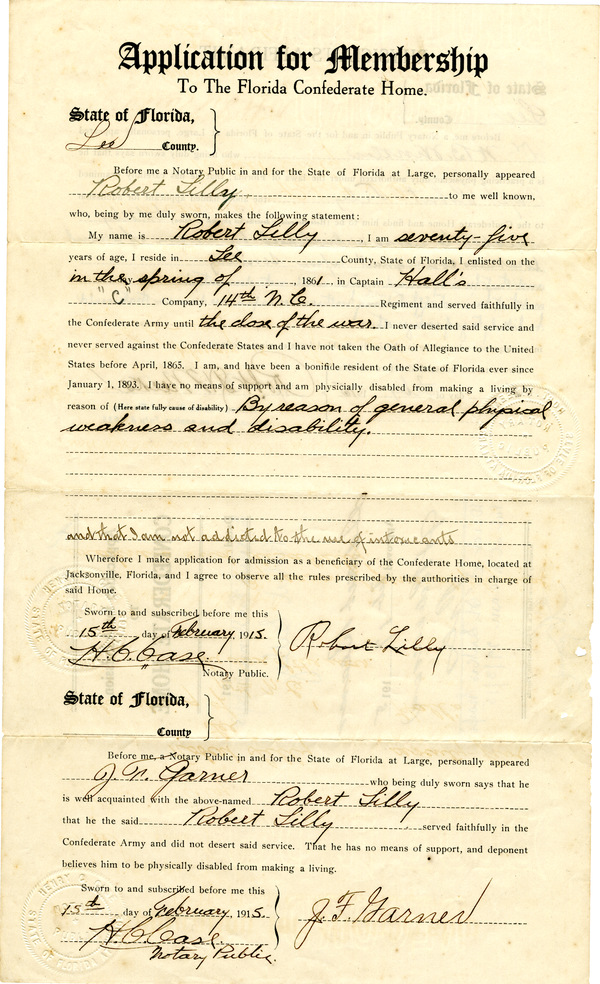 Application for Membership
To The Florida Confederate Home.
State of Florida,
Lee County.
Before me a Notary Public in and for the State of Florida at Large, personally appeared
Robert Lilly to me well known,
who, being by me duly sworn, makes the following statement:
My name is Robert Lilly, I am seventy-five
years of age, I reside in Lee County, State of Florida, I enlisted on the
in the spring of, 1861, in Captain Hall's
"C" Company, 14th N.C. Regiment and served faithfully in
the Confederate Army until the close of the war. I never deserted said service and
never served against the Confederate States and I have not taken the Oath of Allegiance to the United
States before April, 1865. I am, and have been a bonifide resident of the State of Florida ever since
January 1, 1893. I have no means of support and am physicially disabled from making a living by
reason of (Here state fully cause of disability) By reason of general physical
weakness and disability.
and that I am not addicted to the use of intoxicants
Wherefore I make application for admission as a beneficiary of the Confederate Home, located at
Jacksonville, Florida, and I agree to observe all the rules prescribed by the authorities in charge of
said Home.
Sworn to and subscribed before me this
15th day of February, 1915.
Robert Lilly
H.C. Case.
Notary Public.
State of Florida,
County
Before me, a Notary Public in and for the State of Florida at Large, personally appeared
J. F. Garner who being duly sworn says that he
is well acquainted with the above-named Robert Lilly
that he the said Robert Lilly served faithfully in the
Confederate Army and did not desert said service. That he has no means of support, and deponent
believes him to be physically disabled from making a living.
Sworn to and subscribed before me this
15th day of February, 1915.
J. F. Garner
H.C. Case.
Notary Public.